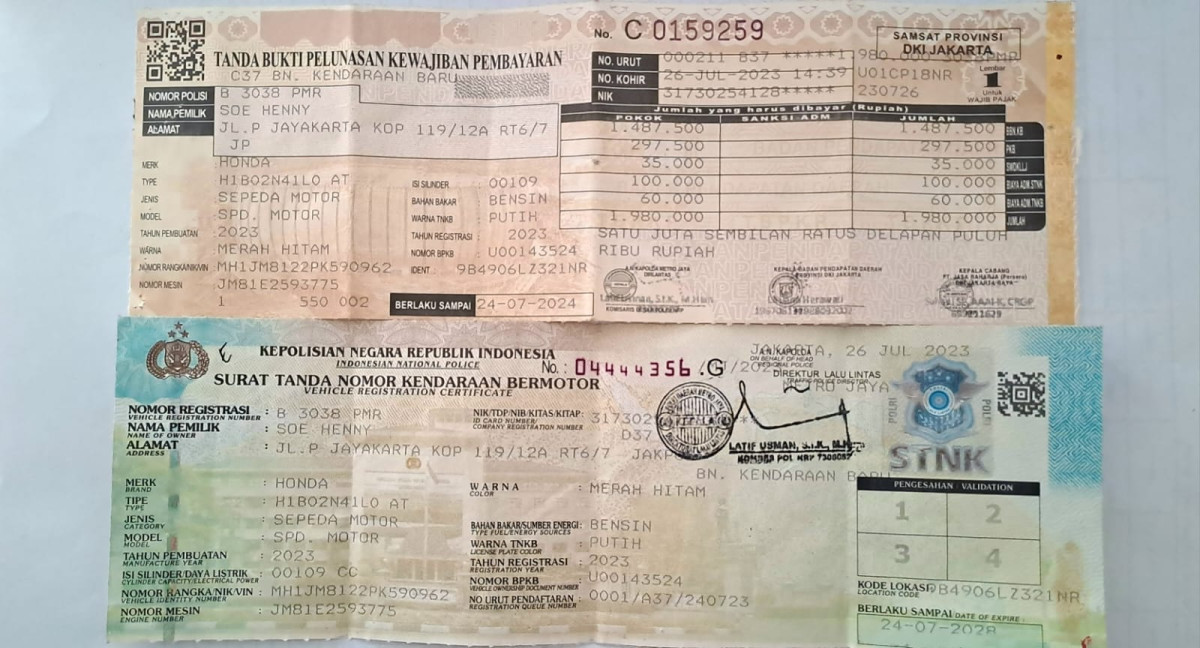 No. C 0159259
SAMSAT PROVINSI
DKI JAKARTA
TANDA BUKTI PELUNASAN KEWAJIBAN PEMBAYARAN
C37 BN. KENDARAAN BARU
NO. URUT 000211 837 *****1.980.000
NO. KOHIR 26-JUL-2023 14:39 U01CP18NR
NIK 31730254128***** 230726
Lembar
1
Untuk
WAJIB PAJAK
NOMOR POLISI B 3038 PMR
NAMA PEMILIK SOE HENNY
ALAMAT JL.P JAYAKARTA KOP 119/12A RT6/7
JP
Jumlah yang harus dibayar (Rupiah)
POKOK SANKSI ADM JUMLAH
1.487.500 1.487.500 BBN.KB
297.500 297.500 PKB
35.000 35.000 SWDKLLJ
100.000 100.000 BIAYA ADM.STNK
60.000 60.000 BIAYA ADM.TNKB
1.980.000 1.980.000 JUMLAH
SATU JUTA SEMBILAN RATUS DELAPAN PULUH
RIBU RUPIAH
MERK : HONDA
TYPE : H1B02N41L0 AT
JENIS : SEPEDA MOTOR
MODEL : SPD. MOTOR
TAHUN PEMBUATAN : 2023
WARNA : MERAH HITAM
NOMOR RANGKA/NIK/VIN : MH1JM8122PK590962
NOMOR MESIN : JM81E2593775
1 550 002
ISI SILINDER : 00109
BAHAN BAKAR : BENSIN
WARNA TNKB : PUTIH
TAHUN REGISTRASI : 2023
NOMOR BPKB : U00143524
IDENT. 9B4906LZ321NR
BERLAKU SAMPAI 24-07-2024
A.N KAPOLDA METRO JAYA
DIRLANTAS
KEPALA BADAN PENDAPATAN DAERAH
PROVINSI DKI JAKARTA
KEPALA CABANG
PT. JASA RAHARJA (Persero)
KEPOLISIAN NEGARA REPUBLIK INDONESIA
INDONESIAN NATIONAL POLICE
No. : 04444356 .G
SURAT TANDA NOMOR KENDARAAN BERMOTOR
VEHICLE REGISTRATION CERTIFICATE
JAKARTA, 26 JUL 2023
A.N. KAPOLDA
ON BEHALF OF HEAD
REGIONAL POLICE
DIREKTUR LALU LINTAS
TRAFFIC POLICE DIRECTOR
METRO JAYA
LATIF USMAN, S.I.K., M.Hum
NOMOR REGISTRASI : B 3038 PMR
VEHICLE REGISTRATION NUMBER
NAMA PEMILIK : SOE HENNY
NAME OF OWNER
ALAMAT : JL.P JAYAKARTA KOP 119/12A RT6/7 JAKP
ADDRESS
NIK/TDP/NIB/KITAS/KITAP: 317302
ID CARD NUMBER
COMPANY REGISTRATION NUMBER
D37
BN. KENDARAAN BARU
POLRI
POLRI
STNK
MERK : HONDA
BRAND
TIPE : H1B02N41L0 AT
TYPE
JENIS : SEPEDA MOTOR
CATEGORY
MODEL : SPD. MOTOR
MODEL
TAHUN PEMBUATAN : 2023
MANUFACTURE YEAR
ISI SILINDER/DAYA LISTRIK : 00109 CC
CYLINDER CAPACITY/ELECTRICAL POWER
NOMOR RANGKA/NIK/VIN : MH1JM8122PK590962
VEHICLE IDENTITY NUMBER
NOMOR MESIN : JM81E2593775
ENGINE NUMBER
WARNA : MERAH HITAM
COLOR
BAHAN BAKAR/SUMBER ENERGI: BENSIN
TYPE FUEL/ENERGY SOURCES
WARNA TNKB : PUTIH
LICENSE PLATE COLOR
TAHUN REGISTRASI : 2023
REGISTRATION YEAR
NOMOR BPKB : U00143524
VEHICLE OWNERSHIP DOCUMENT NUMBER
NO URUT PENDAFTARAN : 0001/A37/240723
REGISTRATION QUEUE NUMBER
PENGESAHAN / VALIDATION
1 2
3 4
KODE LOKASI: 9B4906LZ321NR
LOCATION CODE
BERLAKU SAMPAI DATE OF EXPIRE :
24-07-2028